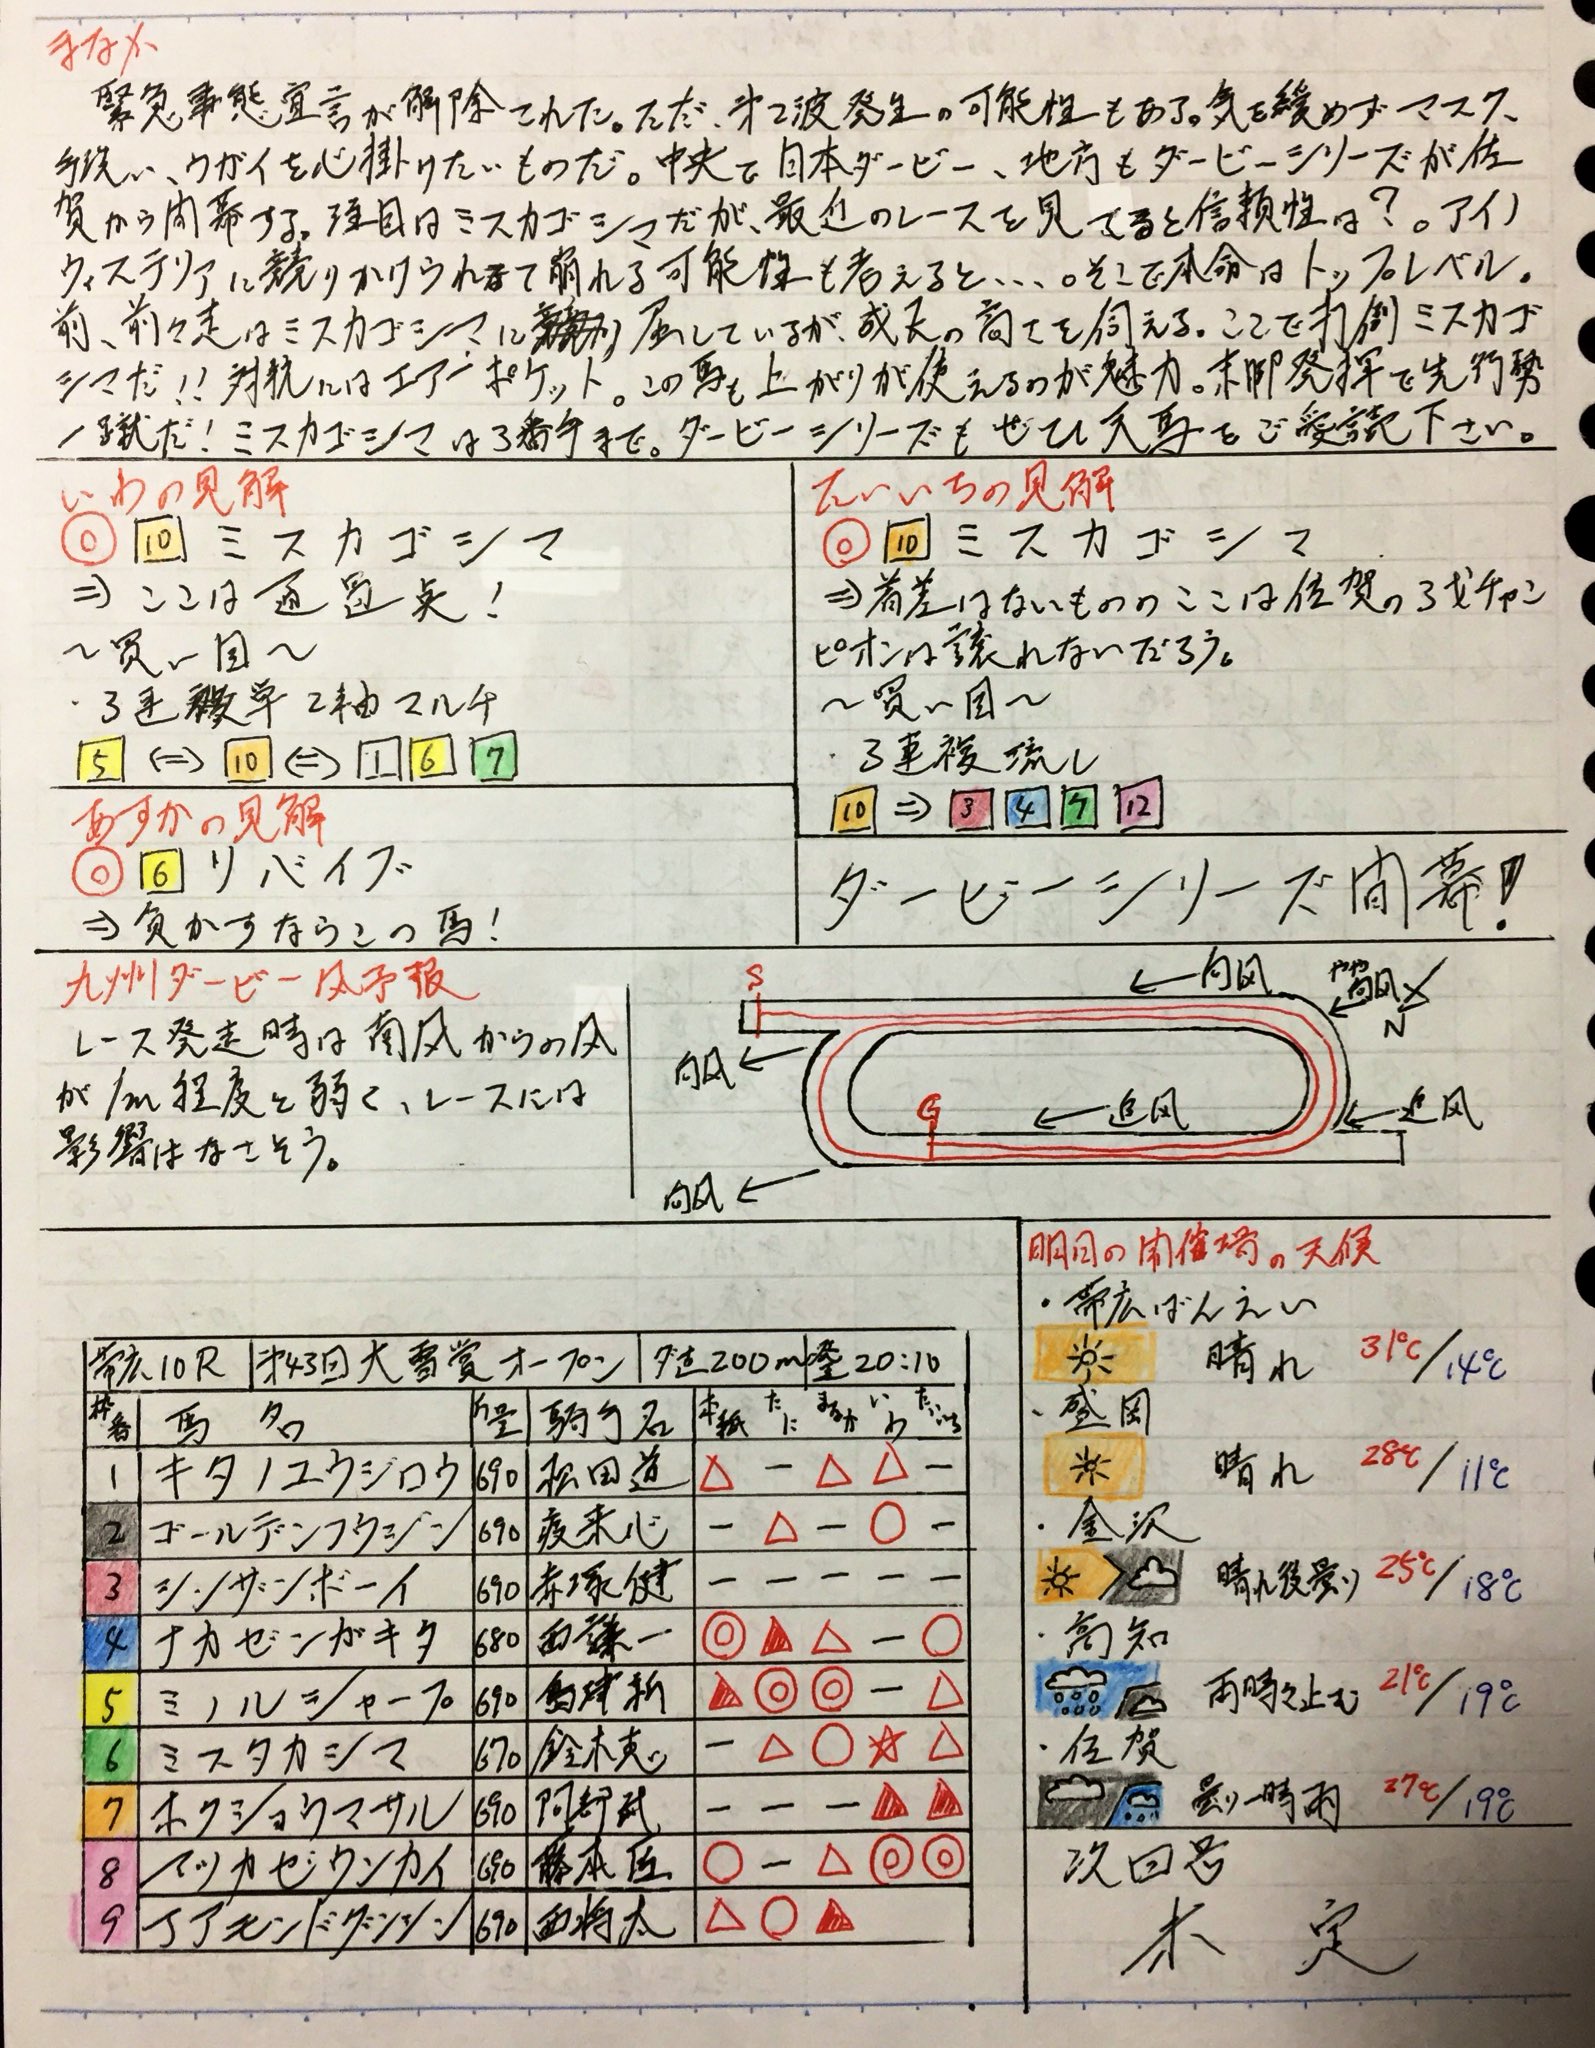 まなか
緊急事態宣言が解除された。ただ、第2波発生の可能性もある。気を緩めずマスク、
手洗い、ウガイを心掛けたいものだ。中央で日本ダービー、地方もダービーシリーズが佐
賀から開幕する。注目はミスカゴシマだが、最近のレースを見てると信頼性は?。アイノ
ウィステリアに競りかけられて崩れる可能性も考えると、、、。そこで本命はトップレベル。
前、前々走はミスカゴシマに屈しているが、成長の高さを伺える。ここで打倒ミスカゴ
シマだ!!対抗にはエアーポケット。この馬も上がりが使えるのが魅力。末脚発揮で先行勢
一蹴だ!ミスカゴシマは3番手まで。ダービーシリーズもぜひ天馬をご愛読下さい。
いわの見解
◎ 10 ミスカゴシマ
⇒ここは通過点!
〜買い目〜
・3連単2軸マルチ
5 ⇔ 10 ⇔ 1 6 7
あすかの見解
◎ 6 リバイブ
⇒負かすならこの馬!
たいいちの見解
◎ 10 ミスカゴシマ
⇒着差はないもののここは佐賀の3才チャン
ピオンは譲れないだろう。
〜買い目〜
・3連複流し
10 ⇒ 3 4 7 12
ダービーシリーズ開幕!
九州ダービー風予報
レース発走時は南風からの風
が1m程度と弱く、レースには
影響はなさそう。
S
向風
やや向風
N
向風
G
追風
追風
向風
帯広10R 第43回大雪賞オープン ダ直200m 発20:10
枠番 馬名 斤量 騎手名 本紙 たに まなか いわ たいいち
1 キタノユウジロウ 690 松田道 △ − △ △ −
2 ゴールデンフウジン 690 疲来心 − △ − ○ −
3 シンザンボーイ 690 赤塚健 − − − − −
4 ナカゼンガキタ 680 西謙一 ◎ ▲ △ − ○
5 ミノルシャープ 690 島津新 ▲ ◎ ◎ − △
6 ミスタカシマ 670 鈴木恵 − △ ○ ☆ △
7 ホクショウマサル 690 阿部武 − − − ▲ ▲
8 マツカゼウンカイ 690 藤本匠 ○ − △ ◎ ◎
9 アアモンドグンシン 690 西将太 △ ○ ▲
明日の開催場の天候
・帯広ばんえい
晴れ 31℃/14℃
・盛岡
晴れ 28℃/11℃
・金沢
晴れ後曇り 25℃/18℃
・高知
雨時々止む 21℃/19℃
・佐賀
曇り一時雨 27℃/19℃
次回号
未定